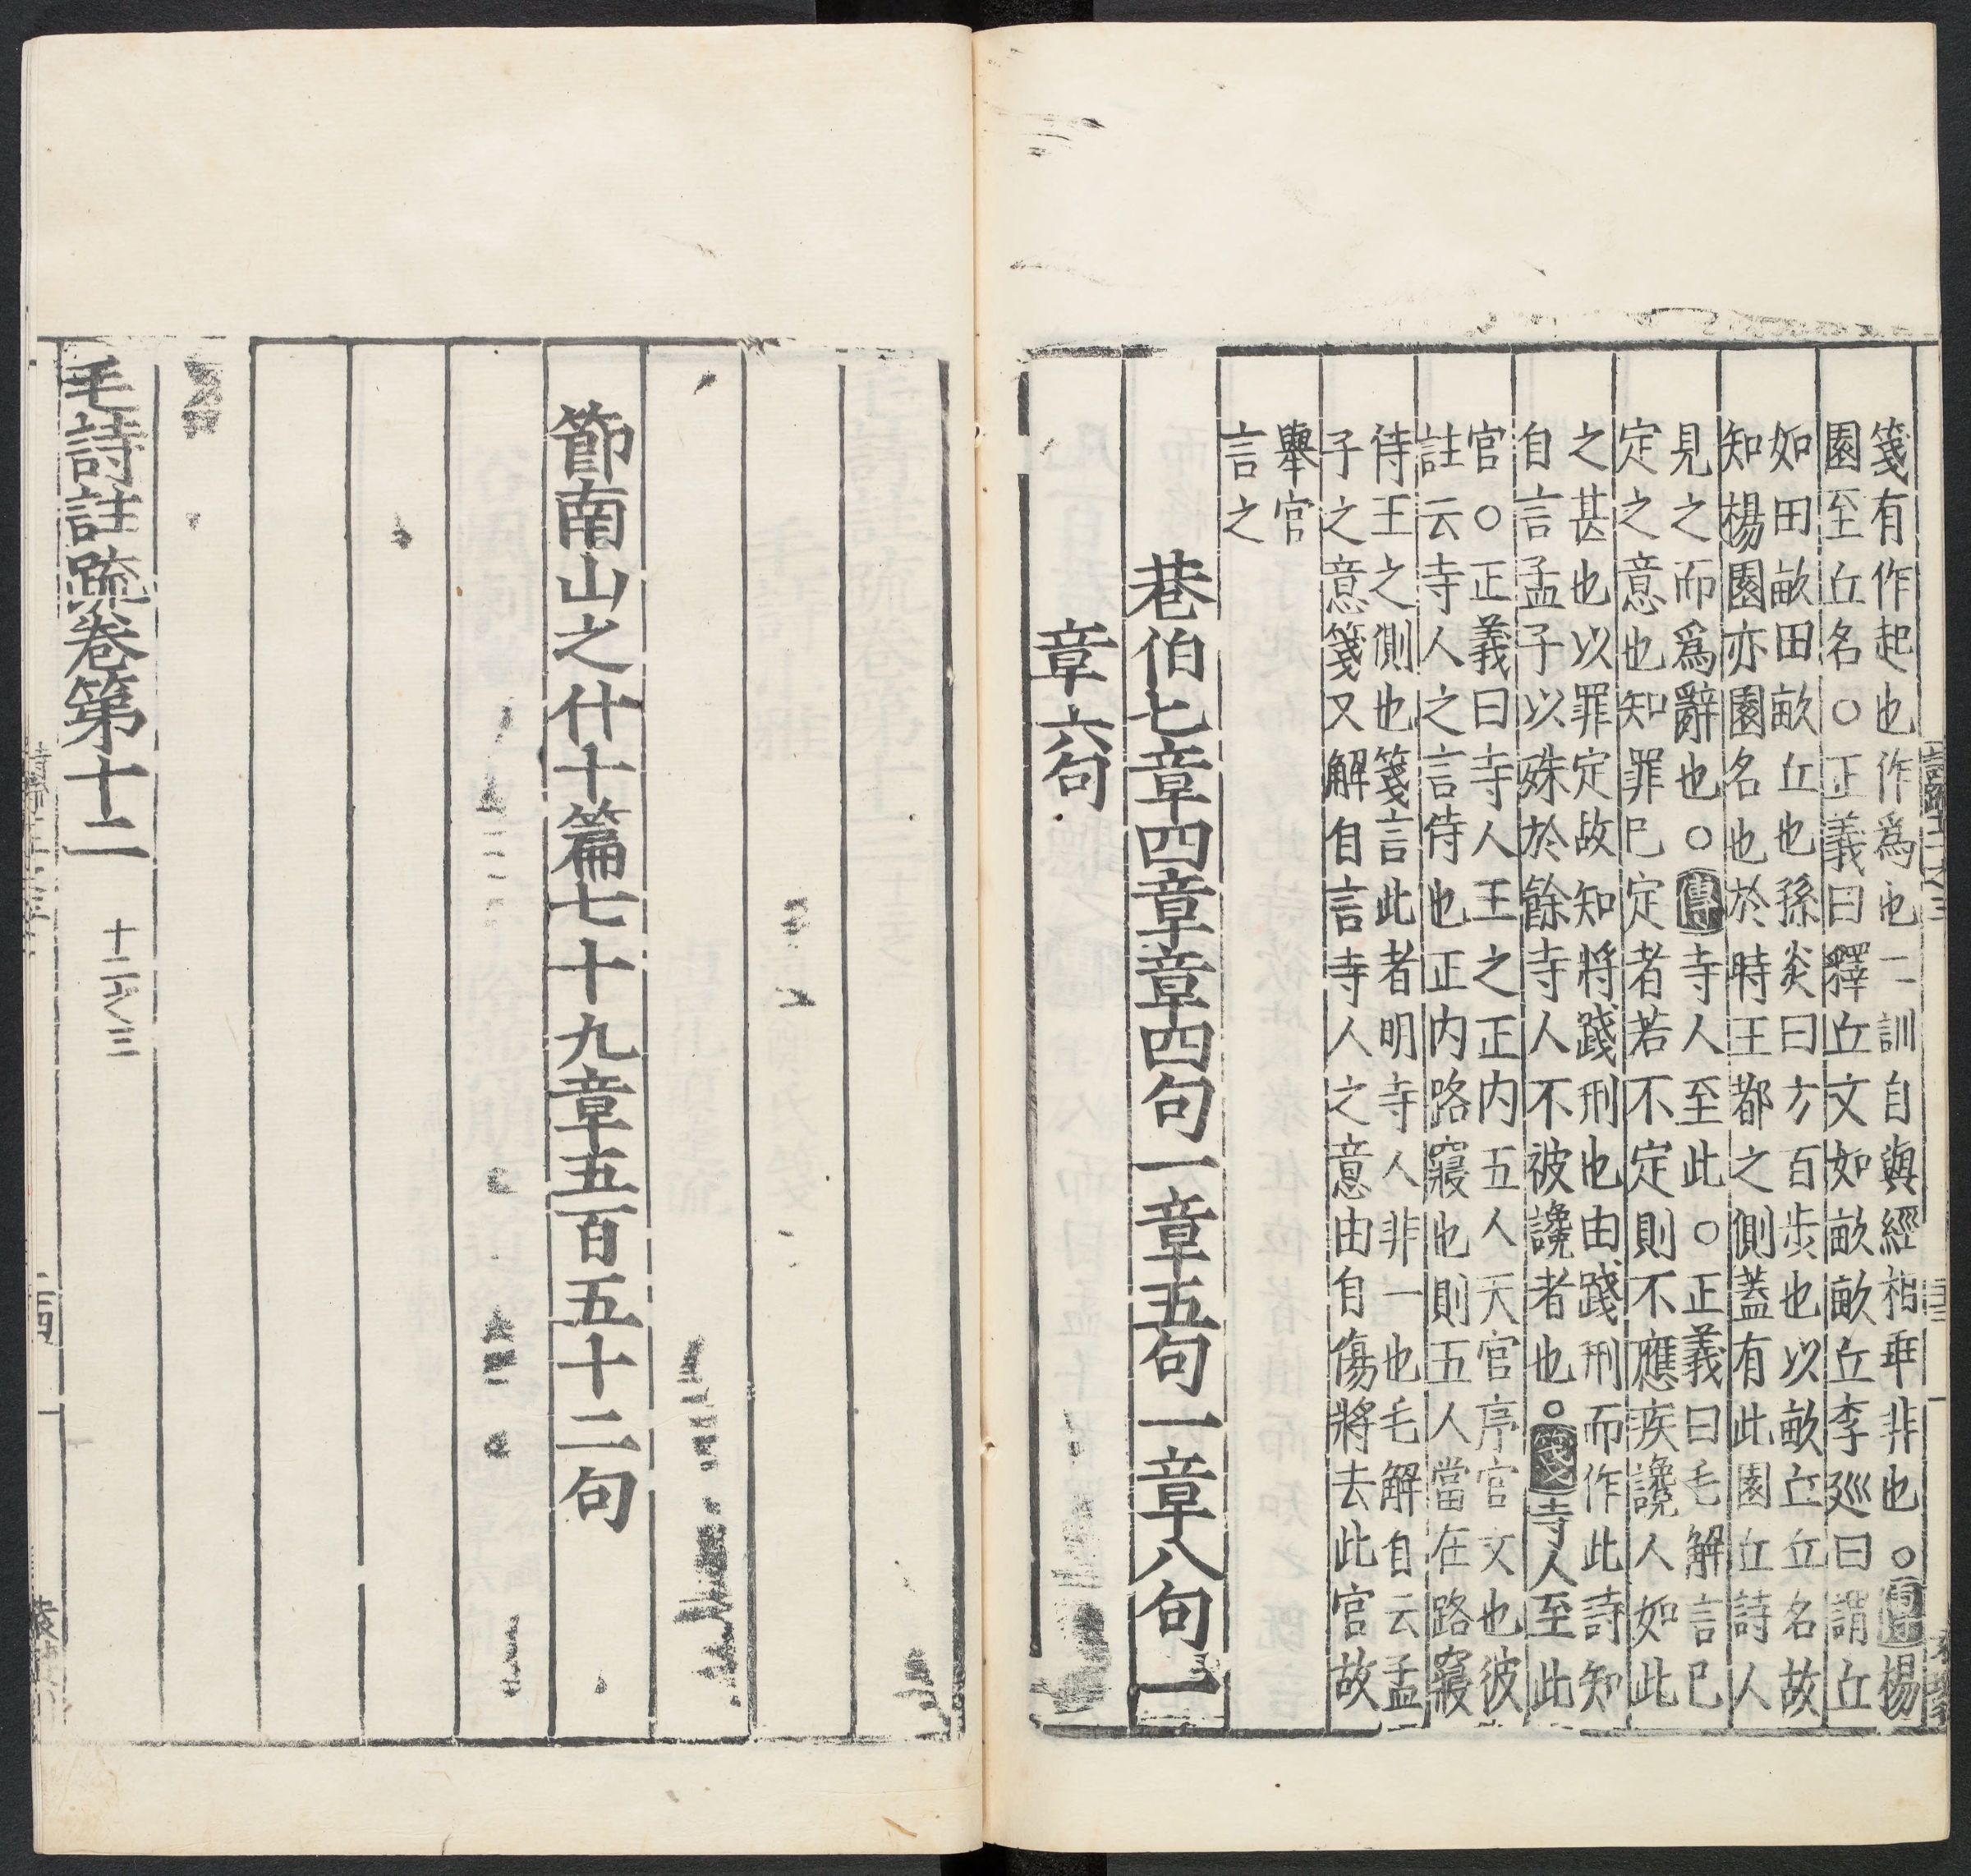 箋有作起也作爲也二訓自與經相乖非也○傳楊
園至丘名○正義曰釋丘文如畝畝丘李廵曰謂丘
如田畝田畝丘也孫炎曰方百步也以畝丘丘名故
知楊園亦園名也於時王都之側蓋有此園丘詩人
見之而爲辭也○傳寺人至此○正義曰毛解言巳
定之意也知罪巳定者若不定則不應疾讒人如此
之甚也以罪定故知將踐刑也由踐刑而作此詩知
自言孟子以殊於餘寺人不被讒者也○箋寺人至此
官○正義曰寺人王之正内五人天官序官文也彼
註云寺人之言侍也正内路寢也則五人當在路寢
侍王之側也箋言此者明寺人非一也毛解自云孟
子之意箋又解自言寺人之意由自傷將去此官故
舉官
言之
巷伯七章四章章四句一章五句一章八句一
章六句
節南山之什十篇七十九章五百五十二句
毛詩註疏卷第十二
十二之三